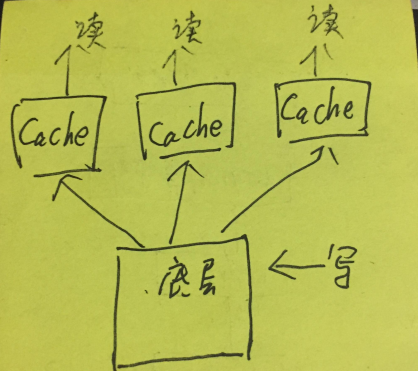 读 读 读
Cache Cache Cache
底层 写